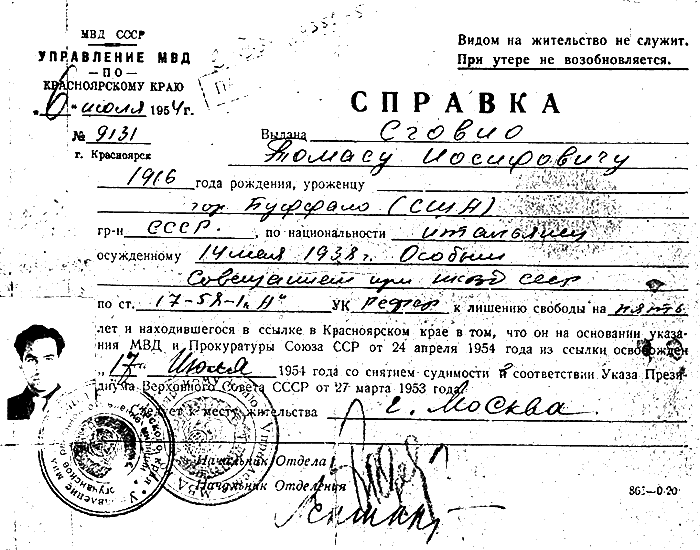 МВД СССР
УПРАВЛЕНИЕ МВД
—ПО—
КРАСНОЯРСКОМУ КРАЮ
„6" июля 1954 г.
№ 9131
г. Красноярск
Видом на жительство не служит.
При утере не возобновляется.
СПРАВКА
Выдана Сговио
Томасу Иосифовичу
1916 года рождения, уроженцу
гор Буффало (США)
гр-н СССР. , по национальности итальянец
осужденному 14 мая 1938 г. Особым
Совещанием при НКВД СССР
по ст. 17-58-1 „А" УК РСФСР к лишению свободы на пять
лет и находившегося в ссылке в Красноярском крае в том, что он на основании указа-
ния МВД и Прокуратуры Союза ССР от 24 апреля 1954 года из ссылки освобожден
„17" Июля 1954 года со снятием судимости в соответствии Указа Прези-
диума Верховного Совета СССР от 27 марта 1953 года.
Следует к месту жительства г. Москва.
Начальник Отдела
Начальник Отделения